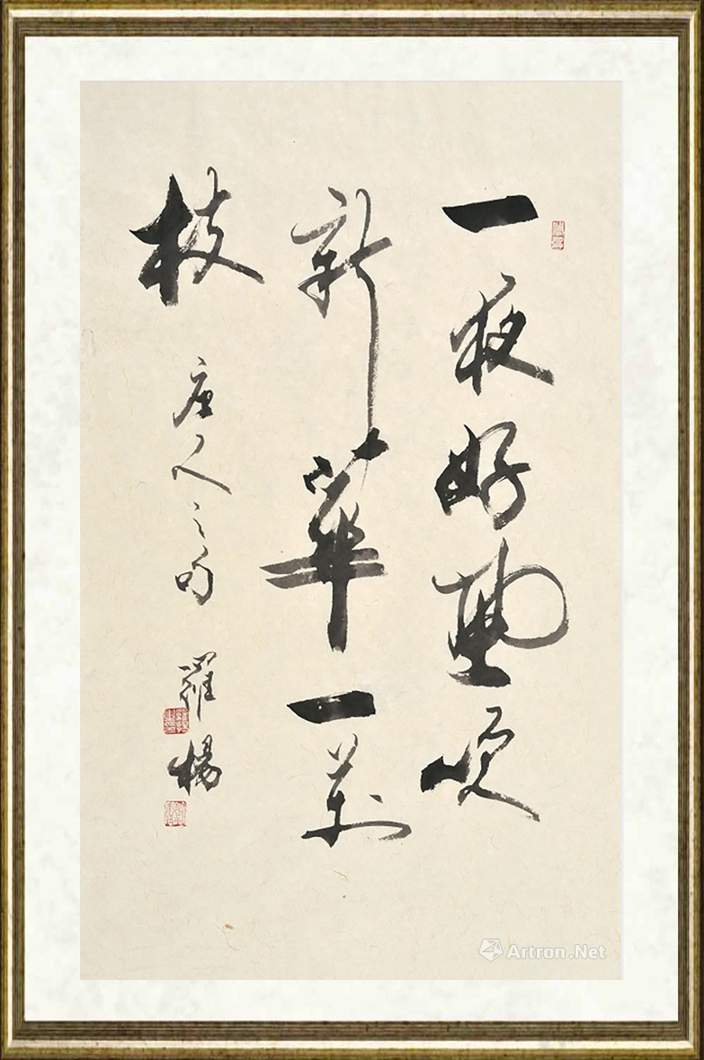 一夜好風吹
新華一萬
枝 唐人之句 羅楊
Artron.Net